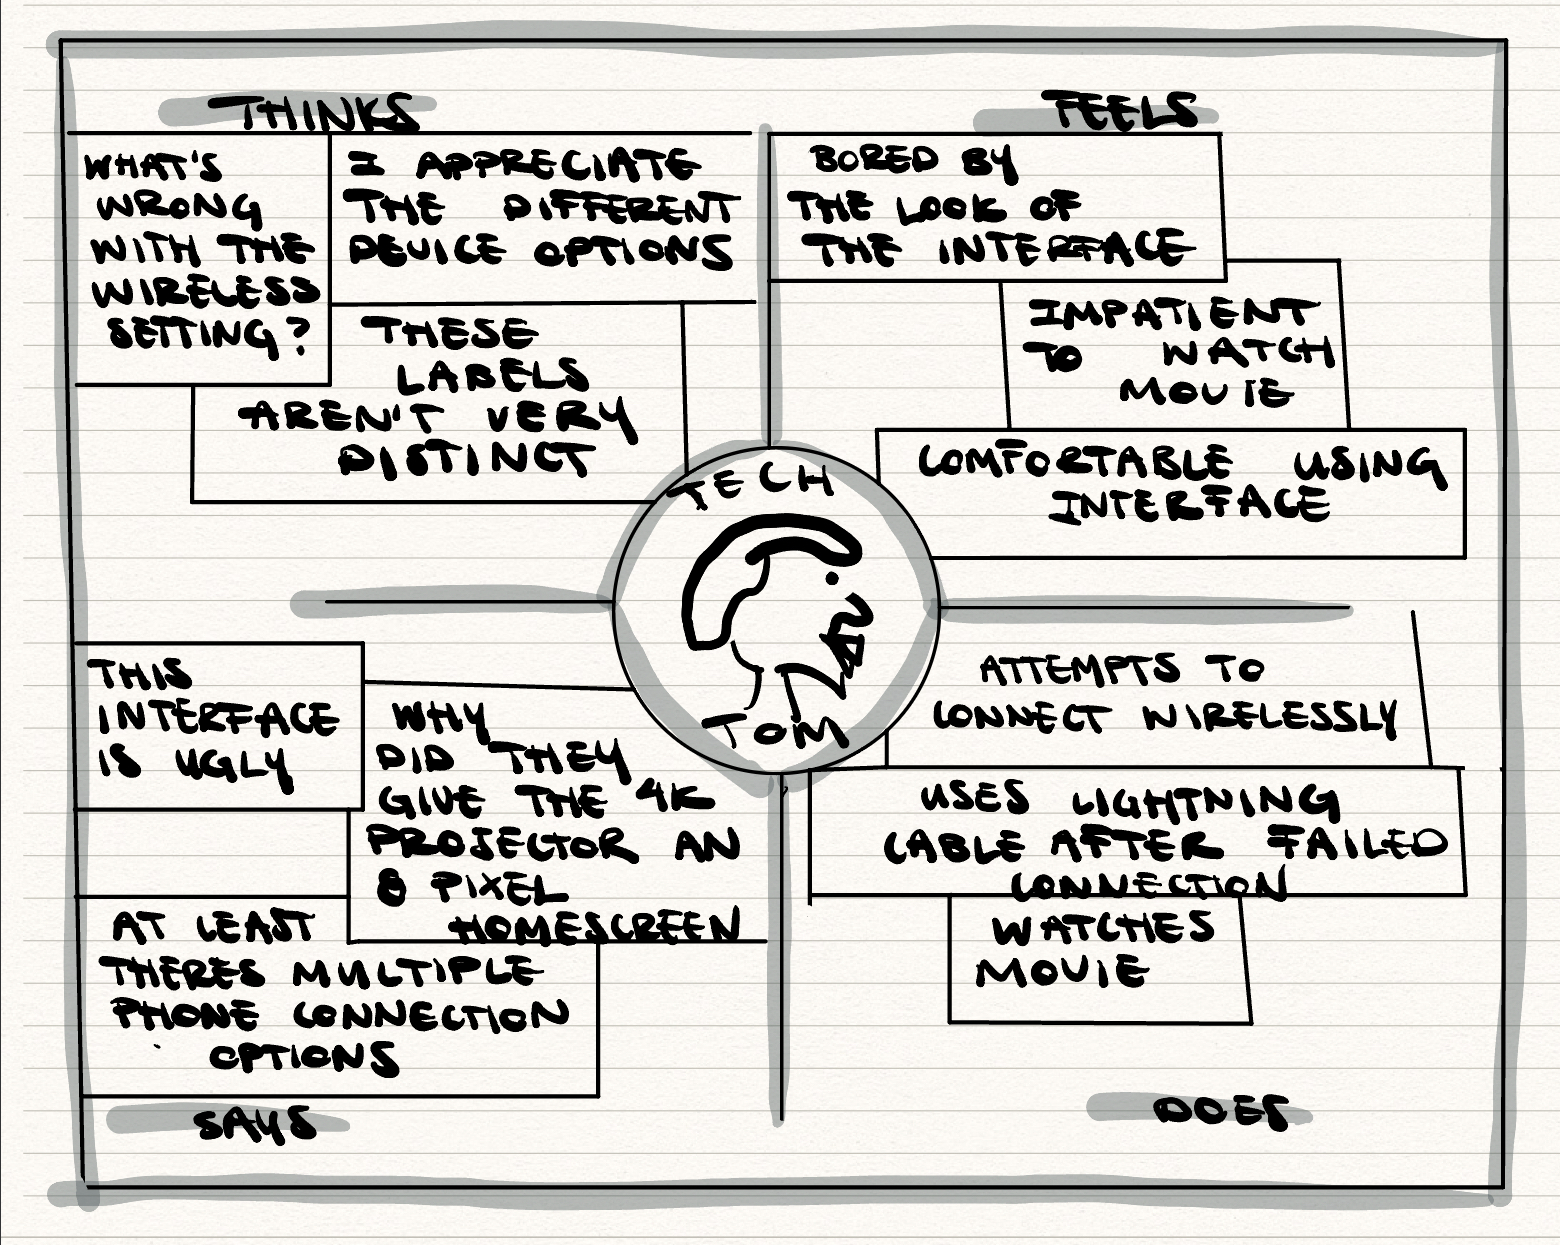 THINKS
WHAT'S
WRONG
WITH THE
WIRELESS
SETTING?
I APPRECIATE
THE DIFFERENT
DEVICE OPTIONS
THESE
LABELS
AREN'T VERY
DISTINCT
FEELS
BORED BY
THE LOOK OF
THE INTERFACE
IMPATIENT
TO WATCH
MOVIE
COMFORTABLE USING
INTERFACE
TECH
TOM
THIS
INTERFACE
IS UGLY
WHY
DID THEY
GIVE THE 4K
PROJECTOR AN
8 PIXEL
HOMESCREEN
AT LEAST
THERES MULTIPLE
PHONE CONNECTION
OPTIONS
SAYS
ATTEMPTS TO
CONNECT WIRELESSLY
USES LIGHTNING
CABLE AFTER FAILED
CONNECTION
WATCHES
MOVIE
DOES